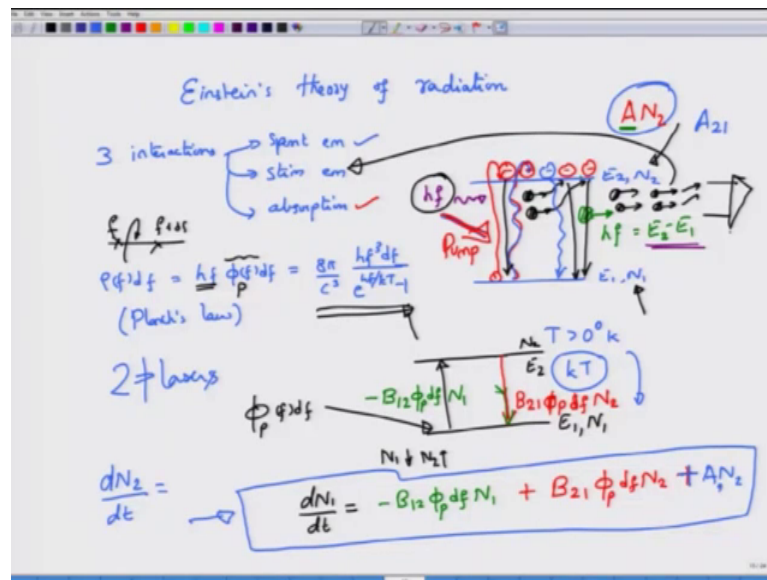 Einstein's theory of radiation
A N₂
A₂₁
3 interactions
Spont em ✓
Stim em
absorption ✓
E₂, N₂
hf
Pump
hf = E₂-E₁
E₁, N₁
f f+df
ρ(f)df = hf φ(f)df = 8π/c³ hf³df/e^hf/kT-1
p
(Planck's law)
2 ≠ lasers
N₂ T>0°K
E₂ kT
-B₁₂ φₚ df N₁
B₂₁ φₚ df N₂
φₚ(f)df
E₁, N₁
N₁↓ N₂↑
dN₂/dt =
dN₁/dt = -B₁₂ φₚ df N₁ + B₂₁ φₚ df N₂ + A, N₂